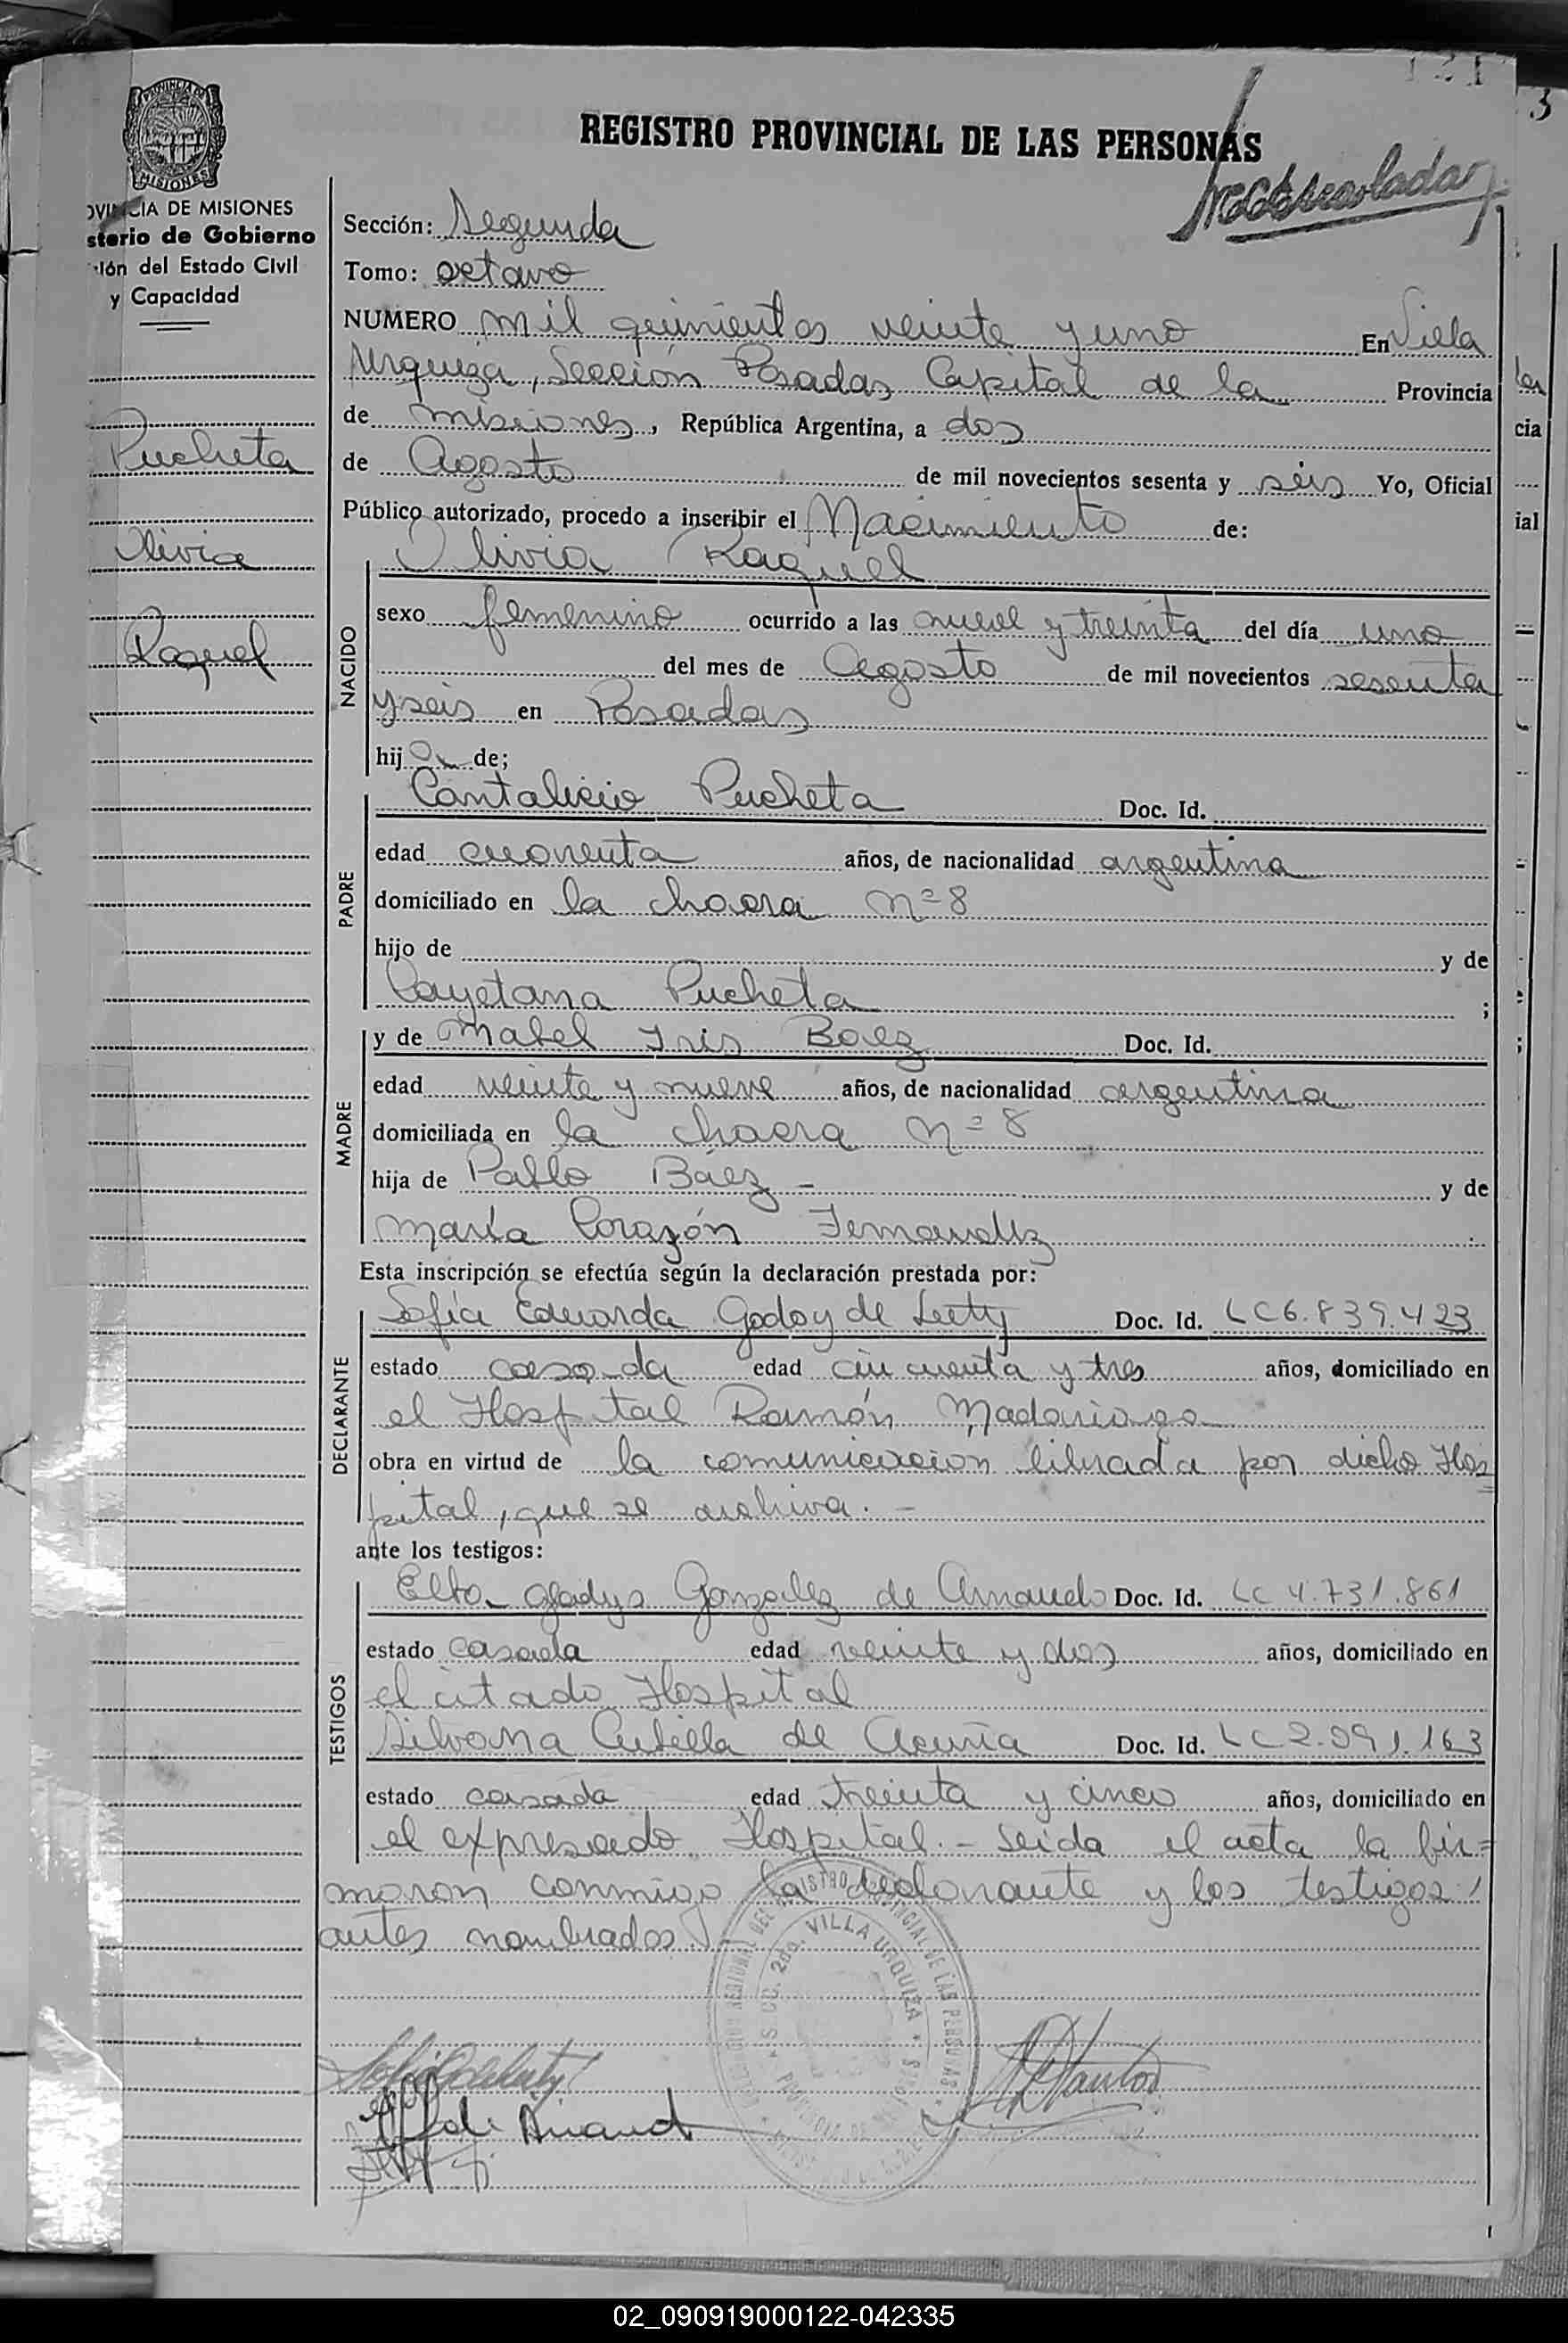 121
3
PROVINCIA DE
MISIONES
REGISTRO PROVINCIAL DE LAS PERSONAS
OVINCIA DE MISIONES
sterio de Gobierno
ión del Estado Civil
y Capacidad
Pucheta
Olivia
Raquel
Sección: Segunda
Tomo: octavo
NUMERO mil quinientos veinte y uno En Villa
Urquiza, Sección Posadas Capital de la Provincia
de misiones, República Argentina, a dos
de Agosto de mil novecientos sesenta y séis Yo, Oficial
Público autorizado, procedo a inscribir el Nacimiento de:
NACIDO
Olivia Raquel
sexo femenino ocurrido a las nueve y treinta del día uno
del mes de Agosto de mil novecientos sesenta
y seis en Posadas
hija de;
PADRE
Cantalicio Pucheta Doc. Id.
edad cuarenta años, de nacionalidad argentina
domiciliado en la chacra nº 8
hijo de y de
Cayetana Pucheta ;
MADRE
y de Mabel Iris Baez Doc. Id.
edad veinte y nueve años, de nacionalidad argentina
domiciliada en la chacra nº 8
hija de Pablo Báez - y de
María Corazón Fernandez
Esta inscripción se efectúa según la declaración prestada por:
DECLARANTE
Sofía Eduarda Godoy de Doc. Id. LC 6.839.423
estado casada edad cincuenta y tres años, domiciliado en
el Hospital Ramón Madariaga
obra en virtud de la comunicacion librada por dicho Hos
pital, que se archiva. -
ante los testigos:
TESTIGOS
Elba Gladys Gonzalez de Doc. Id. LC 4.731.861
estado casada edad veinte y dos años, domiciliado en
el citado Hospital
Silvana de Acuña Doc. Id. LC 2.091.163
estado casada edad treinta y cinco años, domiciliado en
el expresado Hospital. - Leida el acta la fir=
maron conmigo la declarante y los testigos
antes nombrados.
SECC. 2da. VILLA URQUIZA
02_090919000122-042335